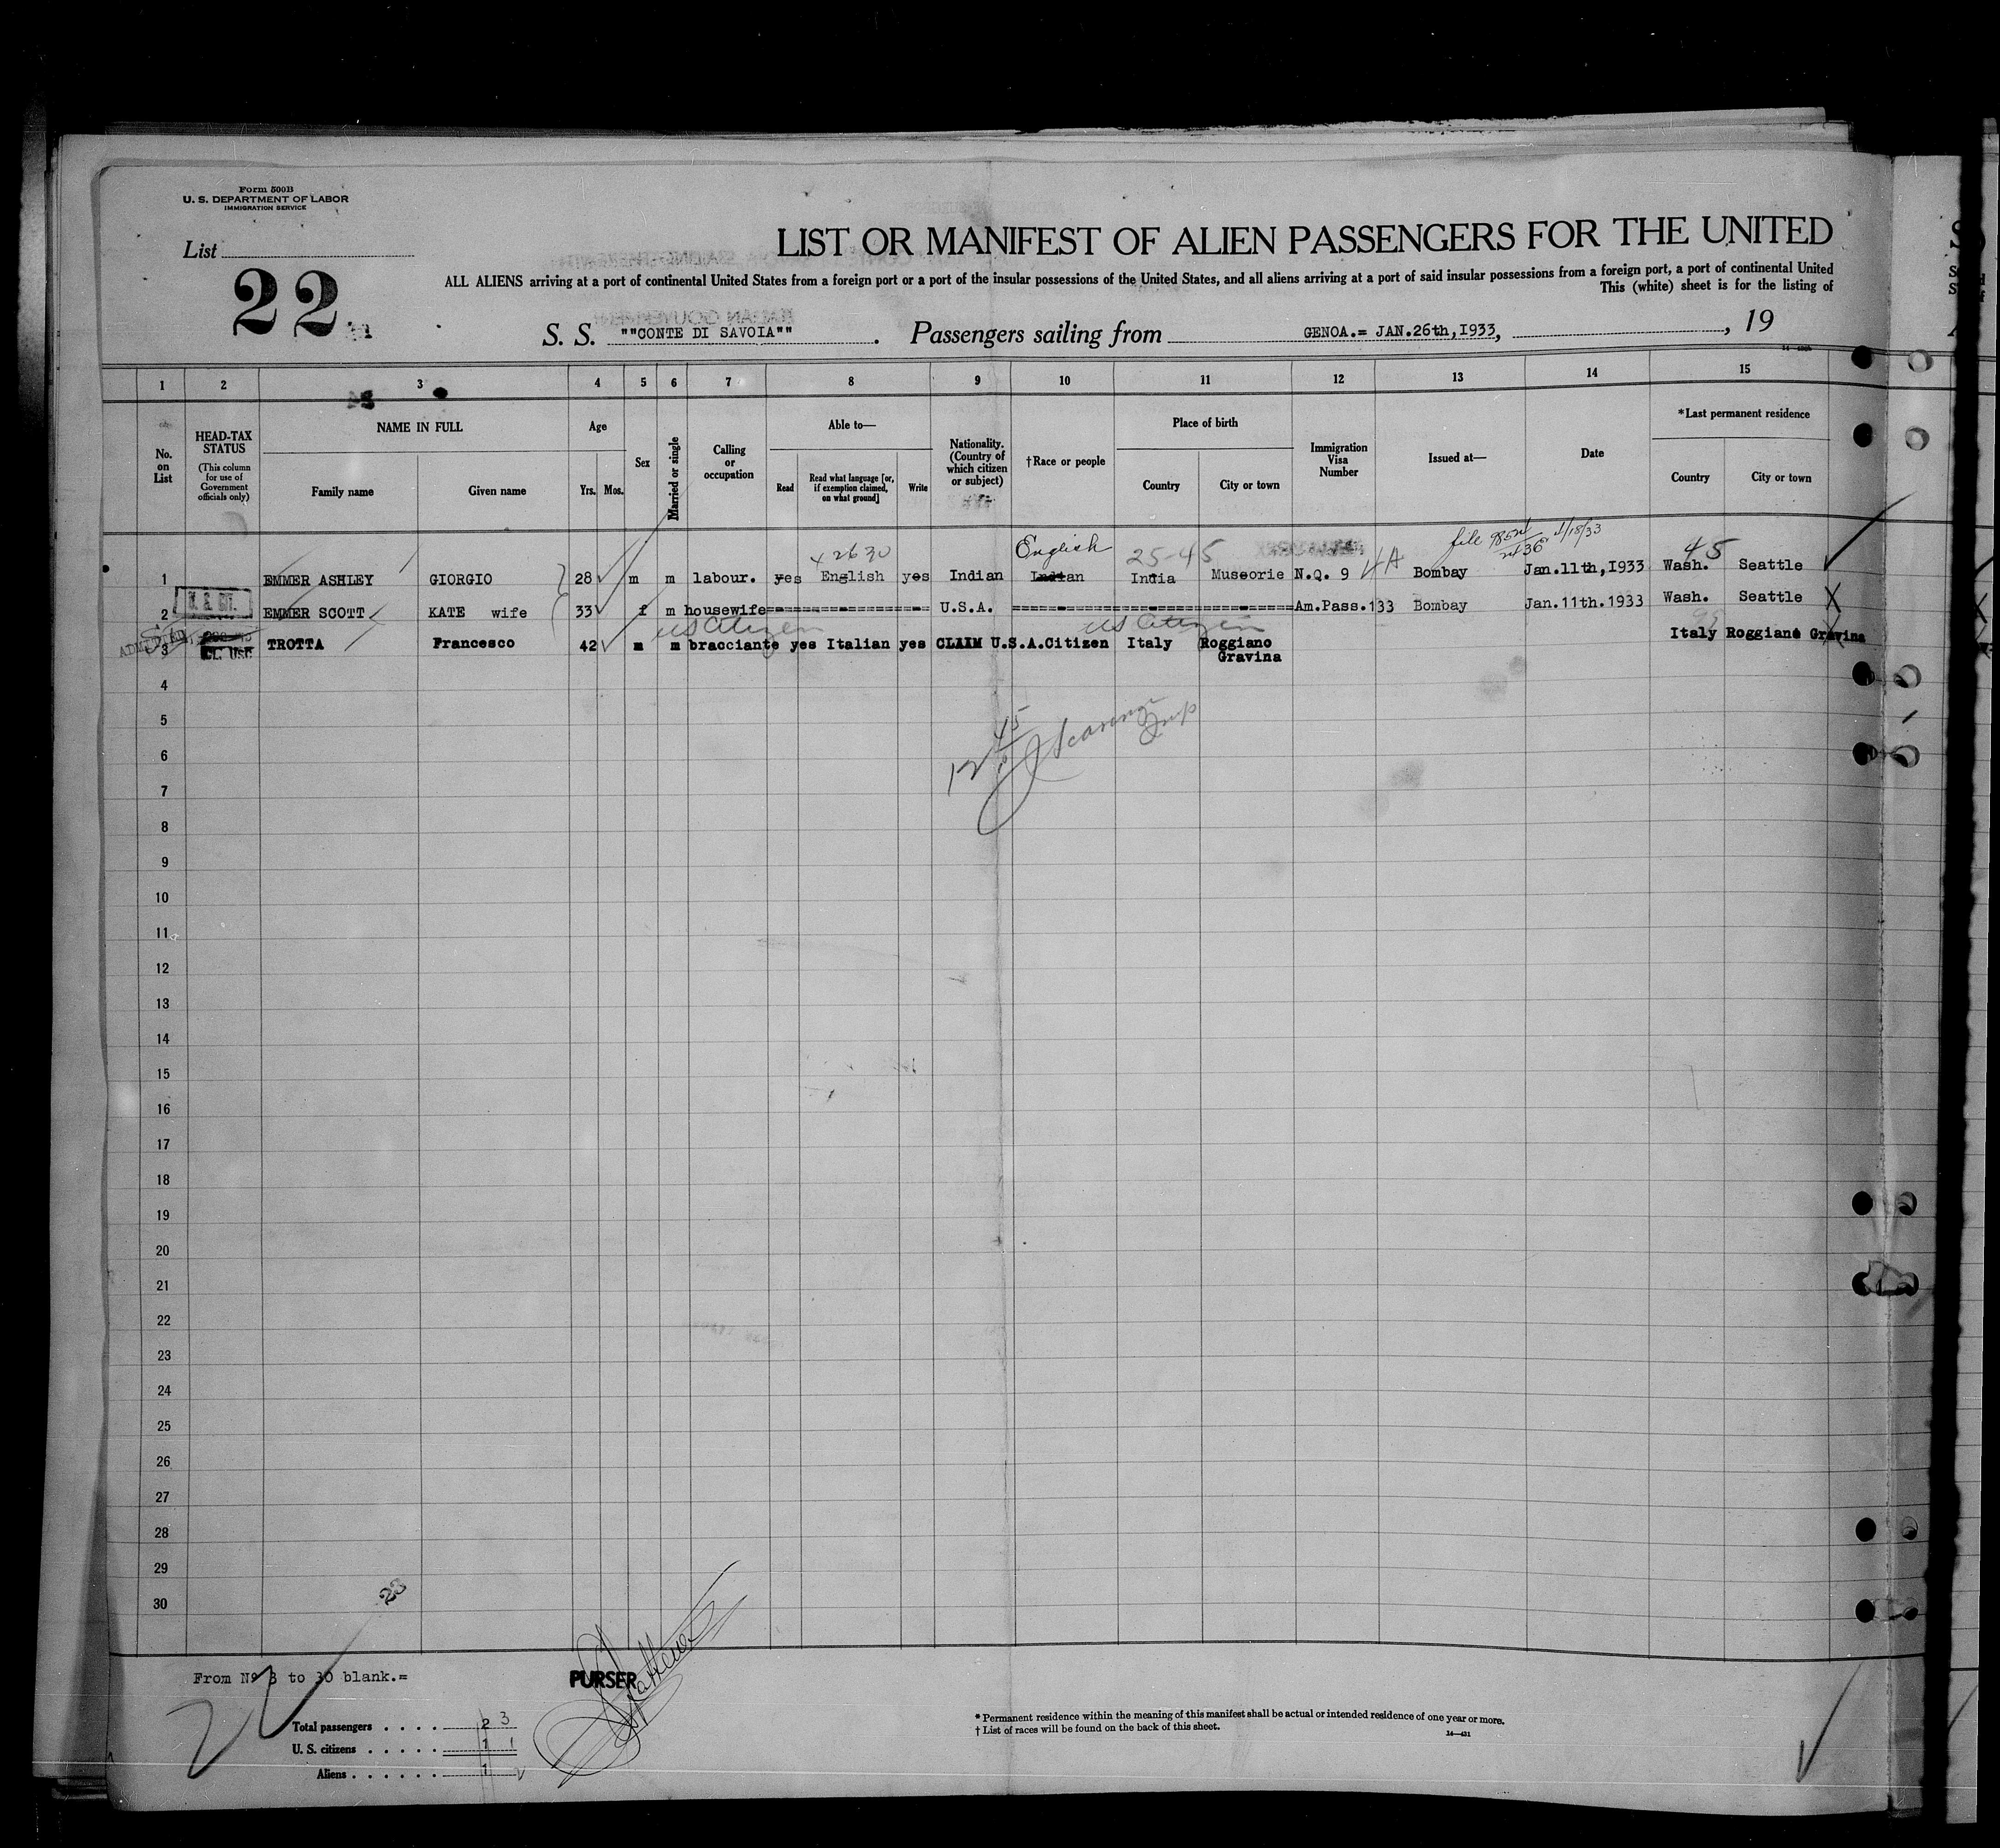 Form 500B
U. S. DEPARTMENT OF LABOR
IMMIGRATION SERVICE
List
22
LIST OR MANIFEST OF ALIEN PASSENGERS FOR THE UNITED
ALL ALIENS arriving at a port of continental United States from a foreign port or a port of the insular possessions of the United States, and all aliens arriving at a port of said insular possessions from a foreign port, a port of continental United
This (white) sheet is for the listing of
S. S. ""CONTE DI SAVOIA"". Passengers sailing from GENOA.= JAN.26th,I933, , 19
1 2 3 4 5 6 7 8 9 10 11 12 13 14 15
No. on List
HEAD-TAX STATUS
(This column for use of Government officials only)
NAME IN FULL
Family name Given name
Age
Yrs. Mos.
Sex
Married or single
Calling or occupation
Able to—
Read
Read what language [or, if exemption claimed, on what ground]
Write
Nationality. (Country of which citizen or subject)
†Race or people
Place of birth
Country City or town
Immigration Visa Number
Issued at—
Date
*Last permanent residence
Country City or town
file 4/18/33
English 25-45 45
1 EMMER ASHLEY GIORGIO 28 m m labour. yes English yes Indian Indian India Museorie N.Q. 9 Bombay Jan.11th,I933 Wash. Seattle
2 EMMER SCOTT KATE wife 33 f m housewife U.S.A. Am.Pass.133 Bombay Jan.11th.1933 Wash. Seattle
US Citizen US Citizen
3 TROTTA Francesco 42 m m bracciante yes Italian yes CLAIM U.S.A.Citizen Italy Roggiano Gravina Italy Roggiano Gravina
4
5
6
7
8
9
10
11
12
13
14
15
16
17
18
19
20
21
22
23
24
25
26
27
28
29
30
23
From Nº 3 to 30 blank.=
PURSER
Total passengers . . . . 2 3
U. S. citizens . . . . . 1 1
Aliens . . . . . . 1
* Permanent residence within the meaning of this manifest shall be actual or intended residence of one year or more.
† List of races will be found on the back of this sheet.
14—431